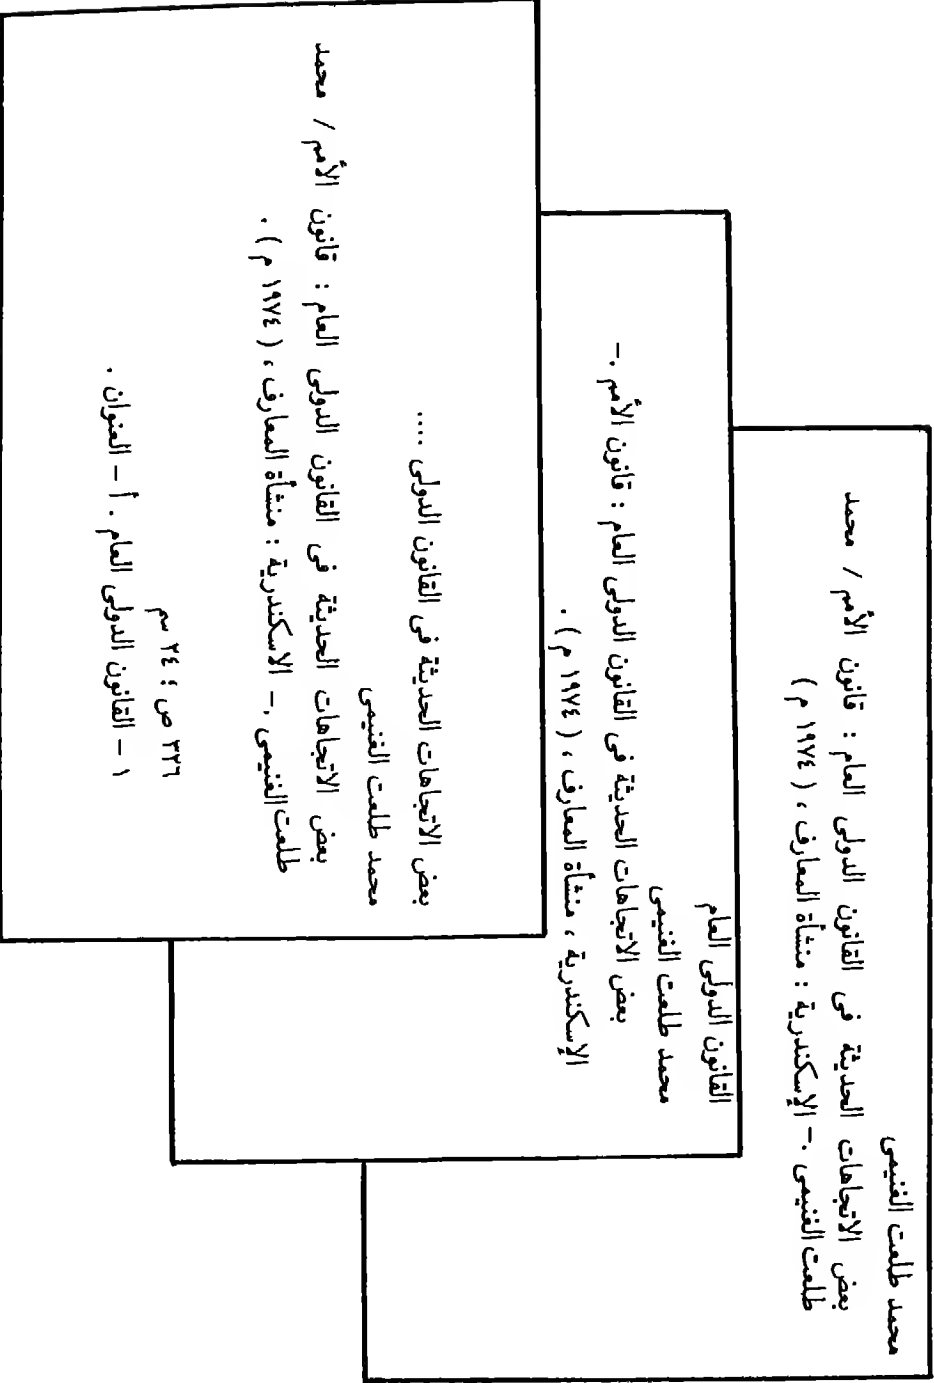 محمد طلعت الغنيمى
بعض الاتجاهات الحديثة فى القانون الدولى العام : قانون الأمم / محمد
طلعت الغنيمى .- الإسكندرية : منشأة المعارف ، ( ١٩٧٤ م )
القانون الدولى العام
محمد طلعت الغنيمى
بعض الاتجاهات الحديثة فى القانون الدولى العام : قانون الأمم .-
الإسكندرية ، منشأة المعارف ، ( ١٩٧٤ م ) .
بعض الاتجاهات الحديثة فى القانون الدولى ....
محمد طلعت الغنيمى
بعض الاتجاهات الحديثة فى القانون الدولى العام : قانون الأمم / محمد
طلعت الغنيمى .- الاسكندرية : منشأة المعارف ، ( ١٩٧٤ م ) .
٣٢٦ ص ؛ ٢٤ سم
١ – القانون الدولى العام . أ – العنوان .